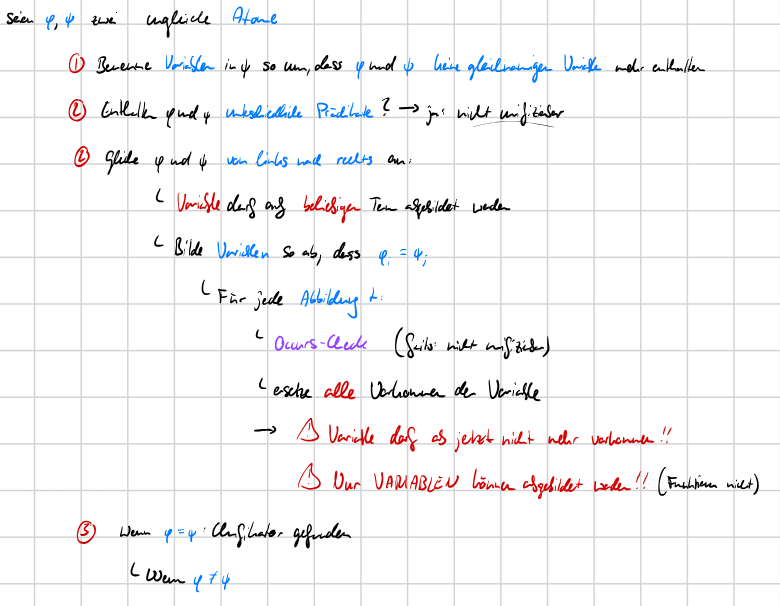 Seien φ, ψ zwei ungleiche Atome
① Benenne Variablen in ψ so um, dass φ und ψ keine gleichnamigen Variable mehr enthalten
② Enthalten φ und ψ unterschiedliche Prädikate? → ja: nicht unifizierbar
② Gleiche φ und ψ von links nach rechts an:
└ Variable darf auf beliebigen Term abgebildet werden
└ Bilde Variablen so ab, dass φᵢ = ψᵢ
└ Für jede Abbildung t:
└ Occurs-Check (falls: nicht unifizierbar)
└ ersetze alle Vorkommen der Variable
→ ⚠ Variable darf ab jetzt nicht mehr vorkommen!!
⚠ Nur VARIABLEN können abgebildet werden!! (Funktionen nicht)
③ Wenn φ = ψ: Unifikator gefunden
└ Wenn φ ≠ ψ